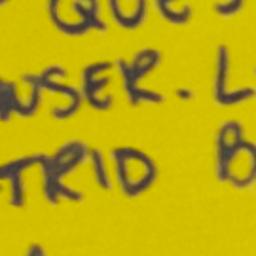 QUES
USER. L
TRID B